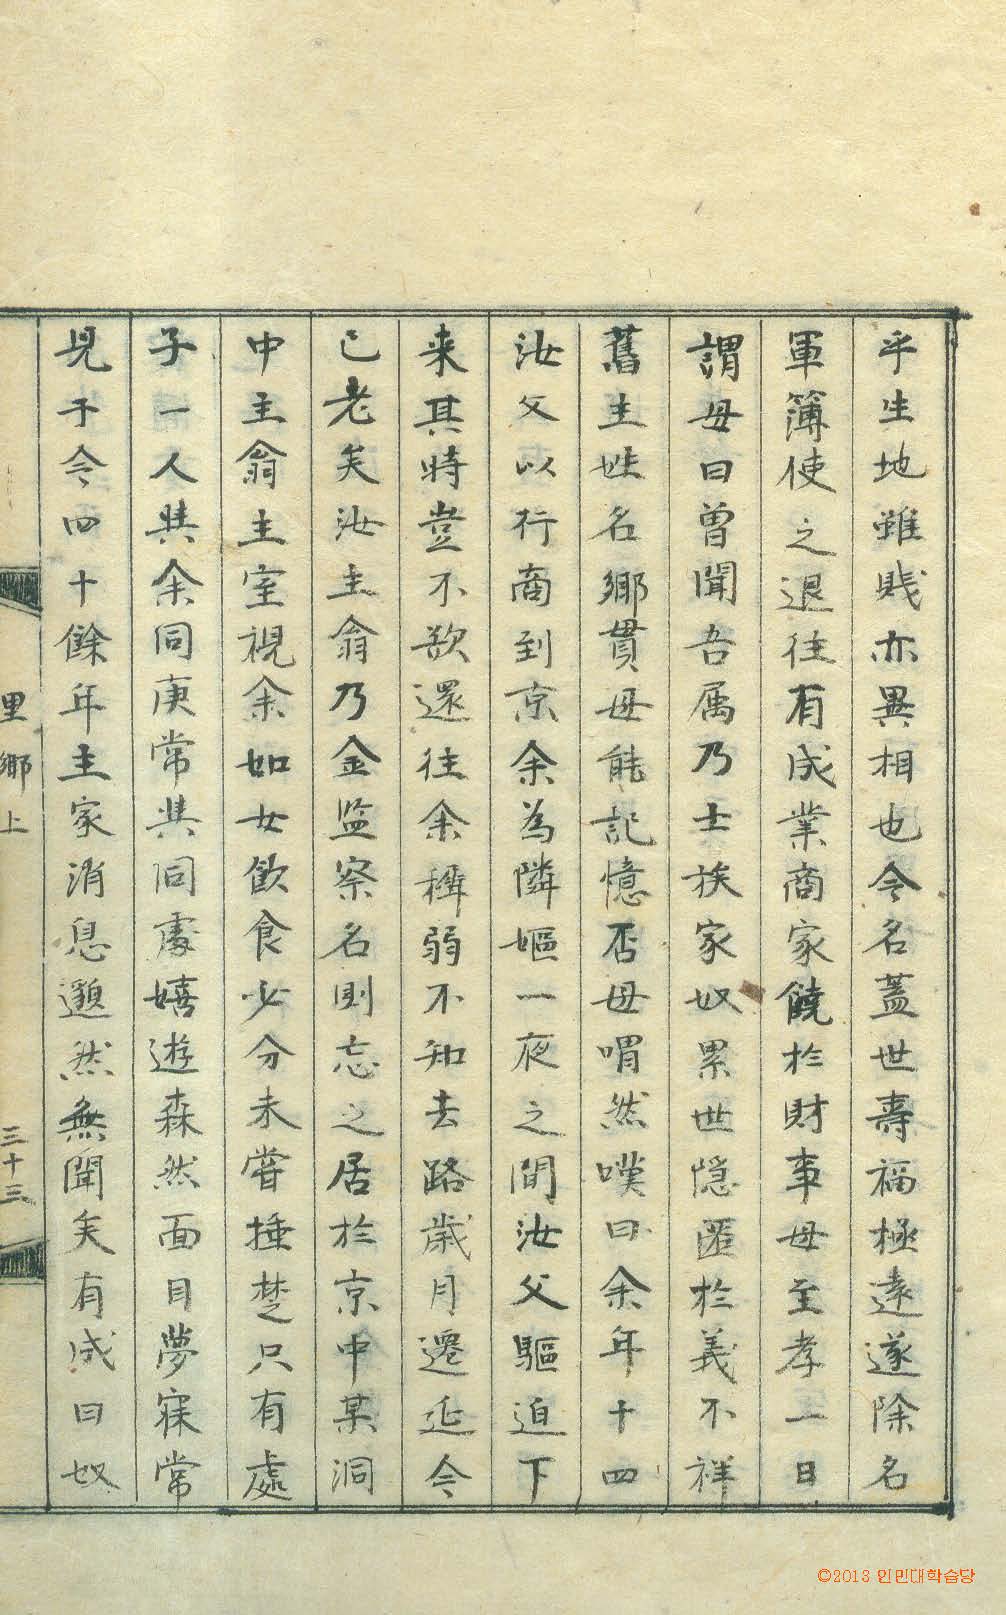 乎生地雖賤亦異相也令名蓋世壽福極遠遂除名
軍簿使之退往有成業商家饒於財事母至孝一日
謂母曰曾聞吾属乃士族家奴累世隱匿於義不祥
舊主姓名鄉貫母能記憶否母喟然嘆曰余年十四
汝父以行商到京余為隣嫗一夜之間汝父驅迫下
来其時豈不欲還往余穉弱不知去路歲月遷延今
已老矣汝主翁乃金监察名則忘之居於京中某洞
中主翁主室視余如女飲食少分未嘗捶楚只有處
子一人與余同庚常與同處嬉遊森然面目夢寐常
見于今四十餘年主家消息邈然無聞矣有成曰奴
里鄉上
三十三
©2013 인민대학습당